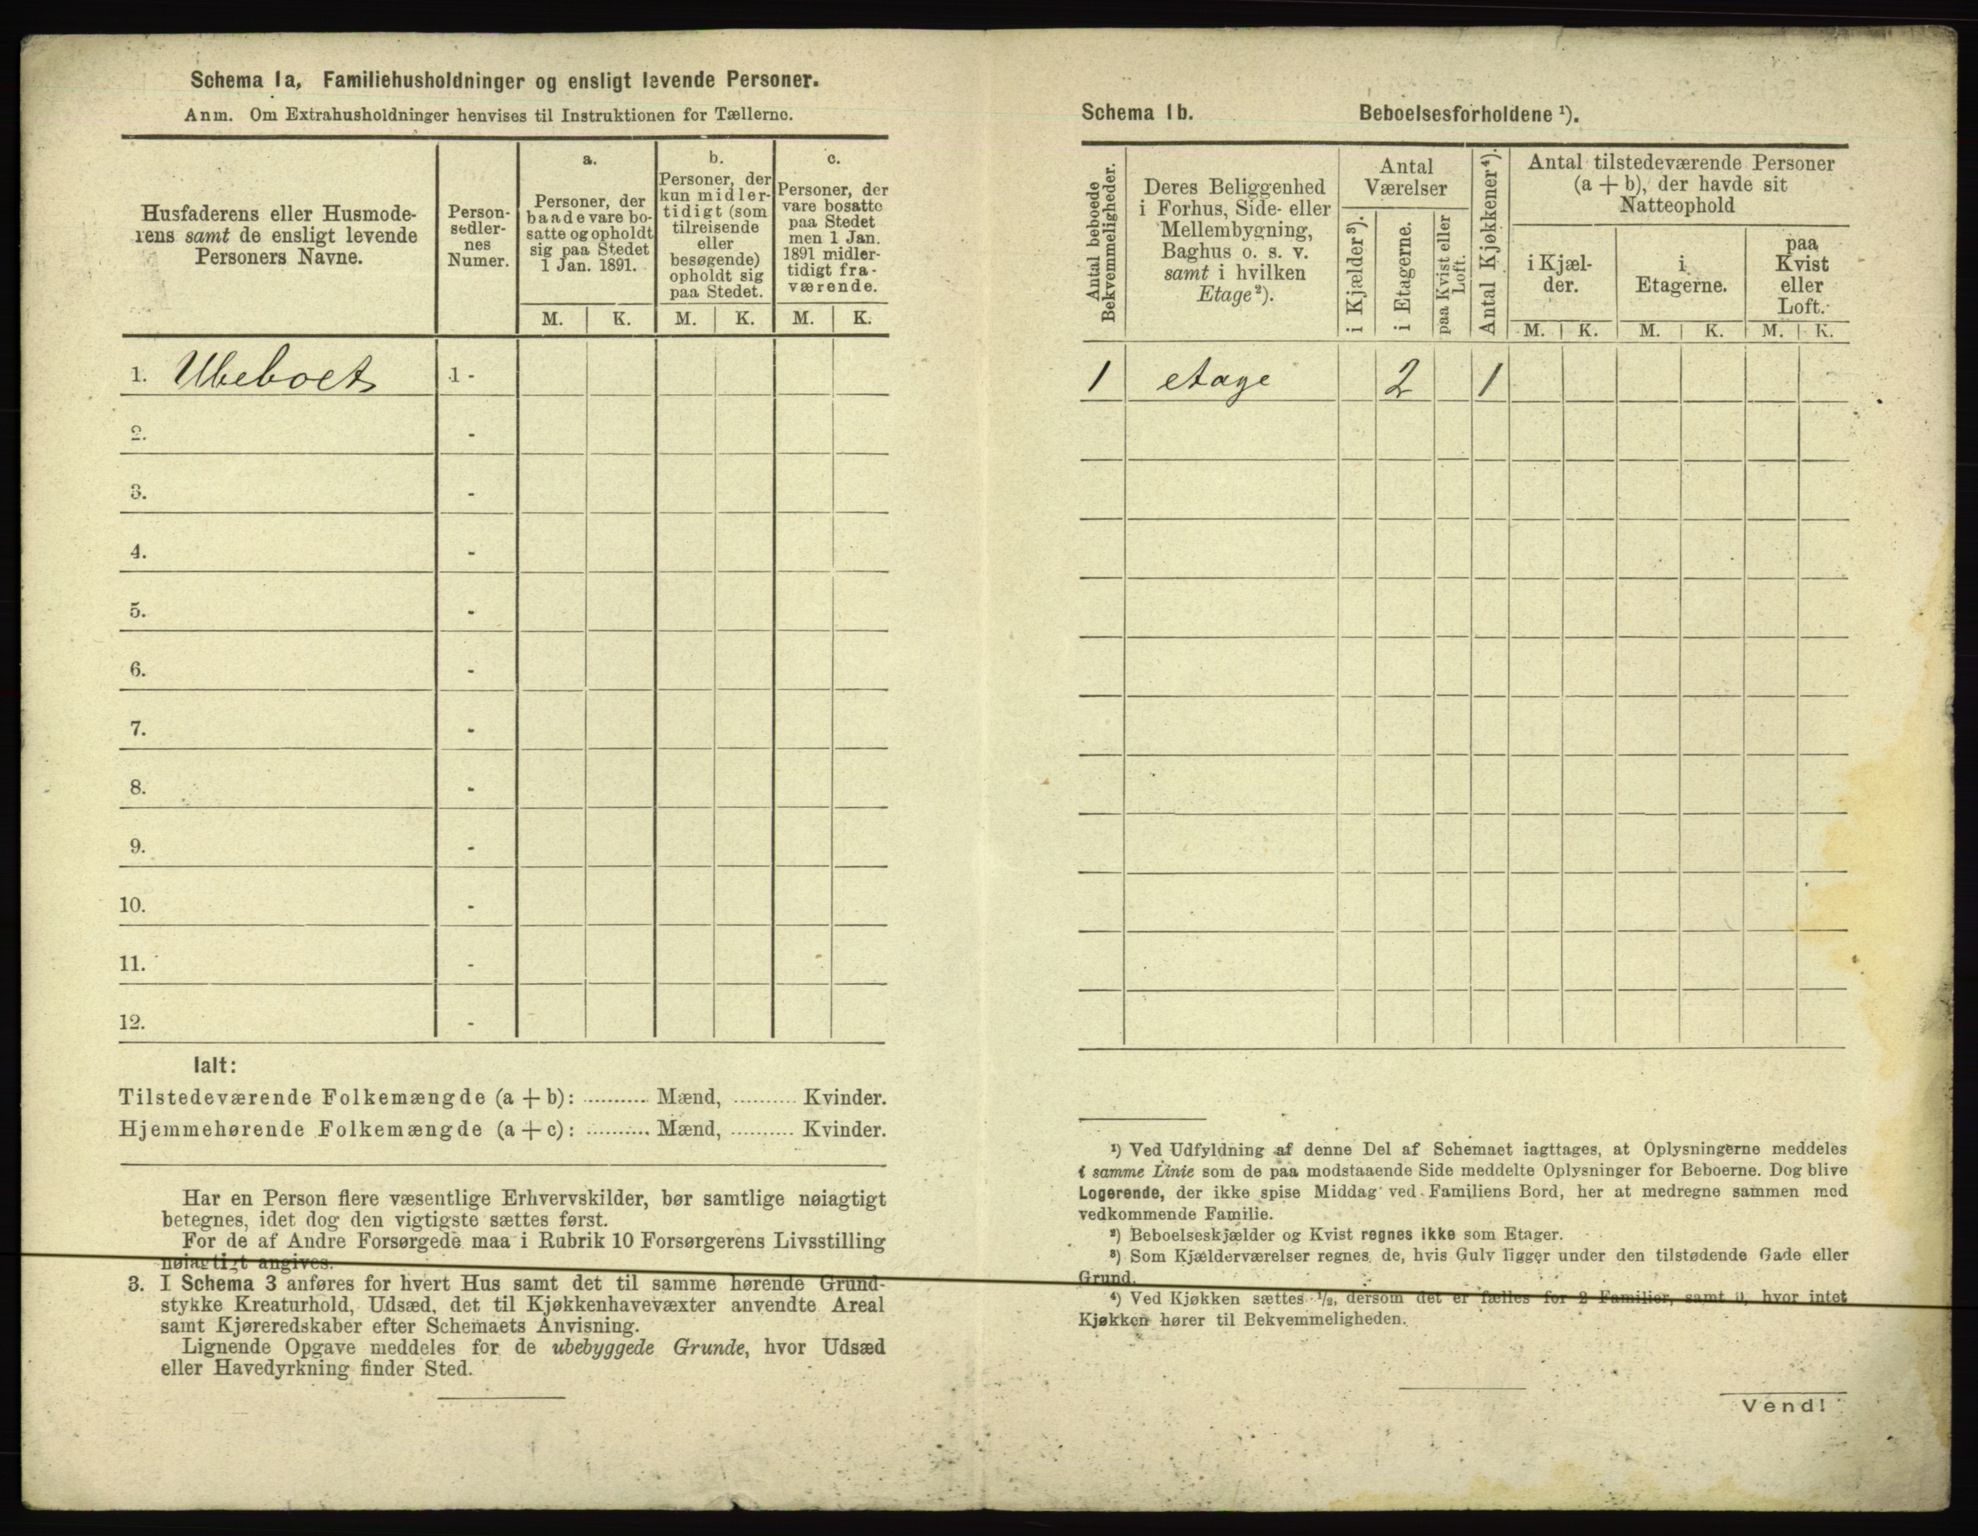 Schema 1a, Familiehusholdninger og ensligt levende Personer.
Anm. Om Extrahusholdninger henvises til Instruktionen for Tællerne.
Husfaderens eller Husmode-
rens samt de ensligt levende
Personers Navne.
Person-
sedler-
nes
Numer.
a.
Personer, der
baade vare bo-
satte og opholdt
sig paa Stedet
1 Jan. 1891.
b.
Personer, der
kun midler-
tidigt (som
tilreisende
eller
besøgende)
opholdt sig
paa Stedet.
c.
Personer, der
vare bosatte
paa Stedet
men 1 Jan.
1891 midler-
tidigt fra-
værende.
M. K. M. K. M. K.
1. Ubeboet 1 -
2. -
3. -
4. -
5. -
6. -
7. -
8. -
9. -
10. -
11. -
12. -
Ialt:
Tilstedeværende Folkemængde (a + b): .......... Mænd, .......... Kvinder.
Hjemmehørende Folkemængde (a + c): .......... Mænd, .......... Kvinder.
Har en Person flere væsentlige Erhvervskilder, bør samtlige nøiagtigt
betegnes, idet dog den vigtigste sættes først.
For de af Andre Forsørgede maa i Rubrik 10 Forsørgerens Livsstilling
nøiagtigt angives.
3. I Schema 3 anføres for hvert Hus samt det til samme hørende Grund-
stykke Kreaturhold, Udsæd, det til Kjøkkenhavevæxter anvendte Areal
samt Kjøreredskaber efter Schemaets Anvisning.
Lignende Opgave meddeles for de ubebyggede Grunde, hvor Udsæd
eller Havedyrkning finder Sted.
Schema 1b. Beboelsesforholdene ¹).
Antal beboede
Bekvemmeligheder.
Deres Beliggenhed
i Forhus, Side- eller
Mellembygning,
Baghus o. s. v.
samt i hvilken
Etage²).
Antal
Værelser
i Kjælder³).
i Etagerne.
paa Kvist eller
Loft.
Antal Kjøkkener⁴).
Antal tilstedeværende Personer
(a + b), der havde sit
Natteophold
i Kjæl-
der.
i
Etagerne.
paa
Kvist
eller
Loft.
M. K. M. K. M. K.
1 etage 2 1
¹) Ved Udfyldning af denne Del af Schemaet iagttages, at Oplysningerne meddeles
i samme Linie som de paa modstaaende Side meddelte Oplysninger for Beboerne. Dog blive
Logerende, der ikke spise Middag ved Familiens Bord, her at medregne sammen med
vedkommende Familie.
²) Beboelseskjælder og Kvist regnes ikke som Etager.
³) Som Kjælderværelser regnes de, hvis Gulv ligger under den tilstødende Gade eller
Grund.
⁴) Ved Kjøkken sættes ½, dersom det er fælles for 2 Familier, samt 0, hvor intet
Kjøkken hører til Bekvemmeligheden.
Vend!